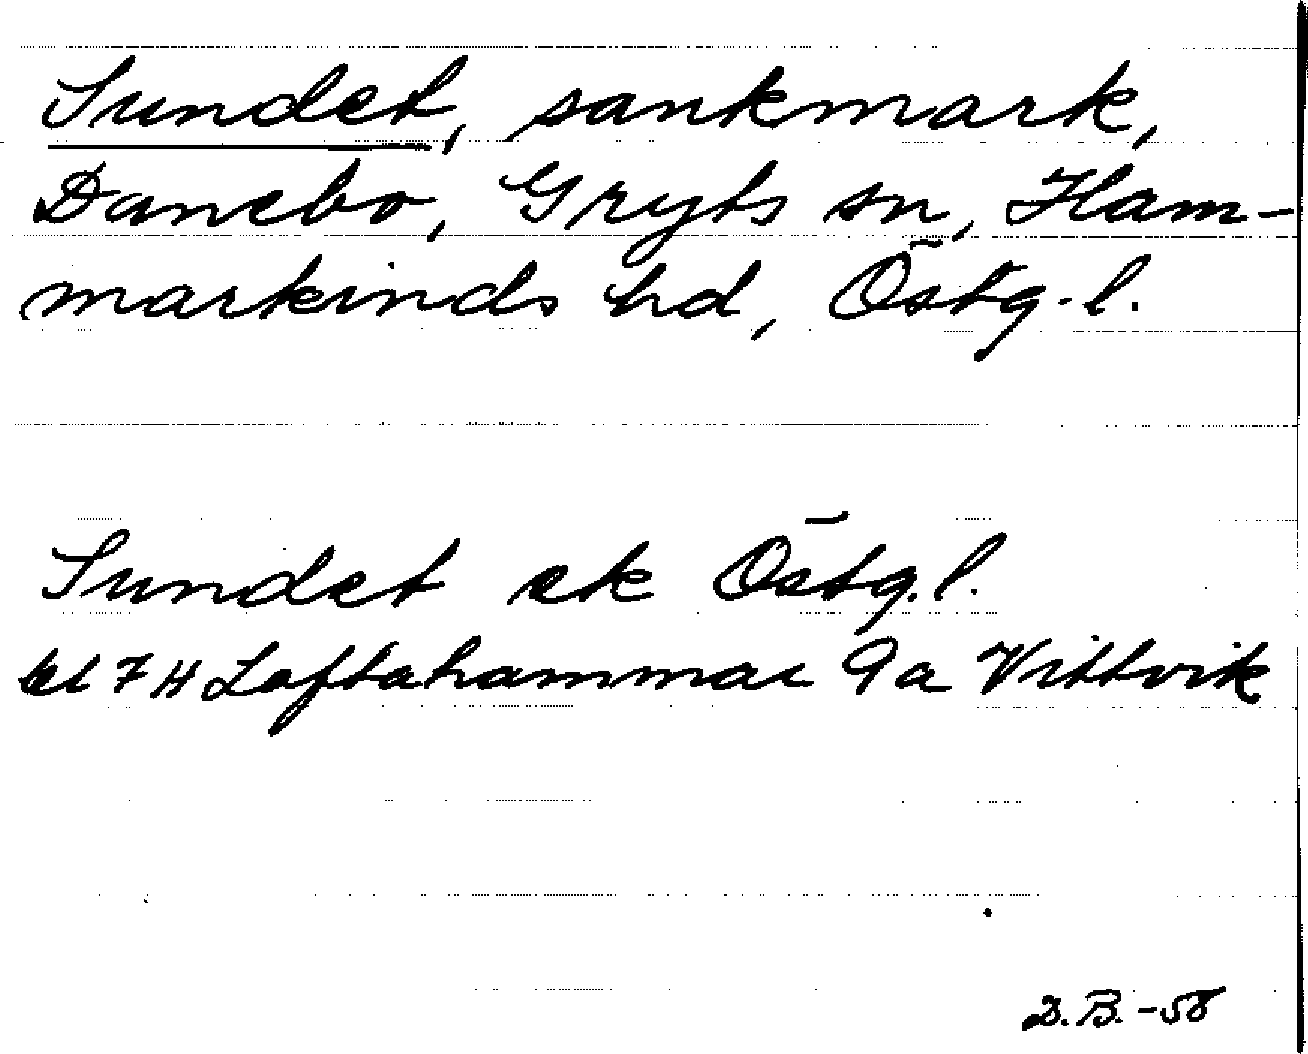 Sundet, sankmark,
Danebo, Gryts sn, Ham-
markinds hd, Östg. l.
Sundet ek Östg. l.
bl 7 H Loftahammar 9a Vittvik
D.B. -58